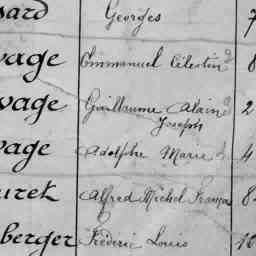 sard Georges 7
vage Emmanuel Célestin 8
vage Guillaume Alain 2
Joseph
vage Adolphe Marie 4
uret Alfred Michel França 8
berger Frédéric Louis 10